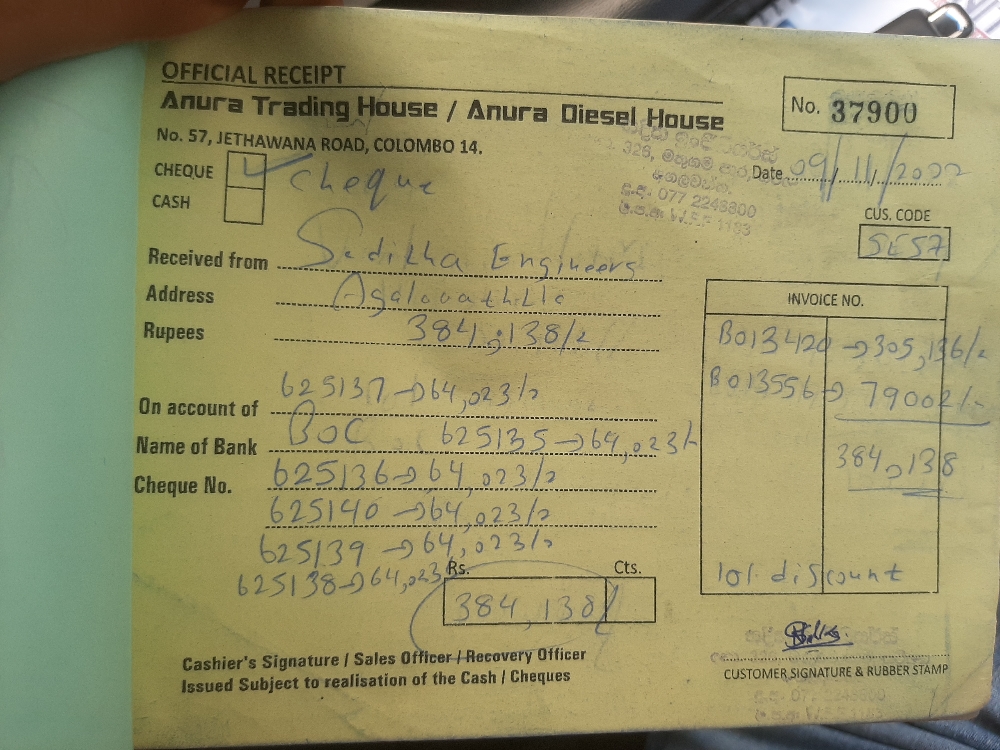 OFFICIAL RECEIPT
Anura Trading House / Anura Diesel House
No. 37900
No. 57, JETHAWANA ROAD, COLOMBO 14.
Date 09/11/2022
CHEQUE Cheque
CASH
077 2243300
CUS. CODE
SE57
Received from Saditha Engineers
Address
Rupees 384,138/=
INVOICE NO.
B013420 → 305,136/=
B013556 → 79002/-
384,138
10% discount
625137 → 64,023/=
On account of
Name of Bank BOC 625135 → 64,023/-
Cheque No. 625136 → 64,023/=
625140 → 64,023/=
625139 → 64,023/=
625138 → 64,023/
Rs. Cts.
384,138/
Cashier's Signature / Sales Officer / Recovery Officer
Issued Subject to realisation of the Cash / Cheques
CUSTOMER SIGNATURE & RUBBER STAMP